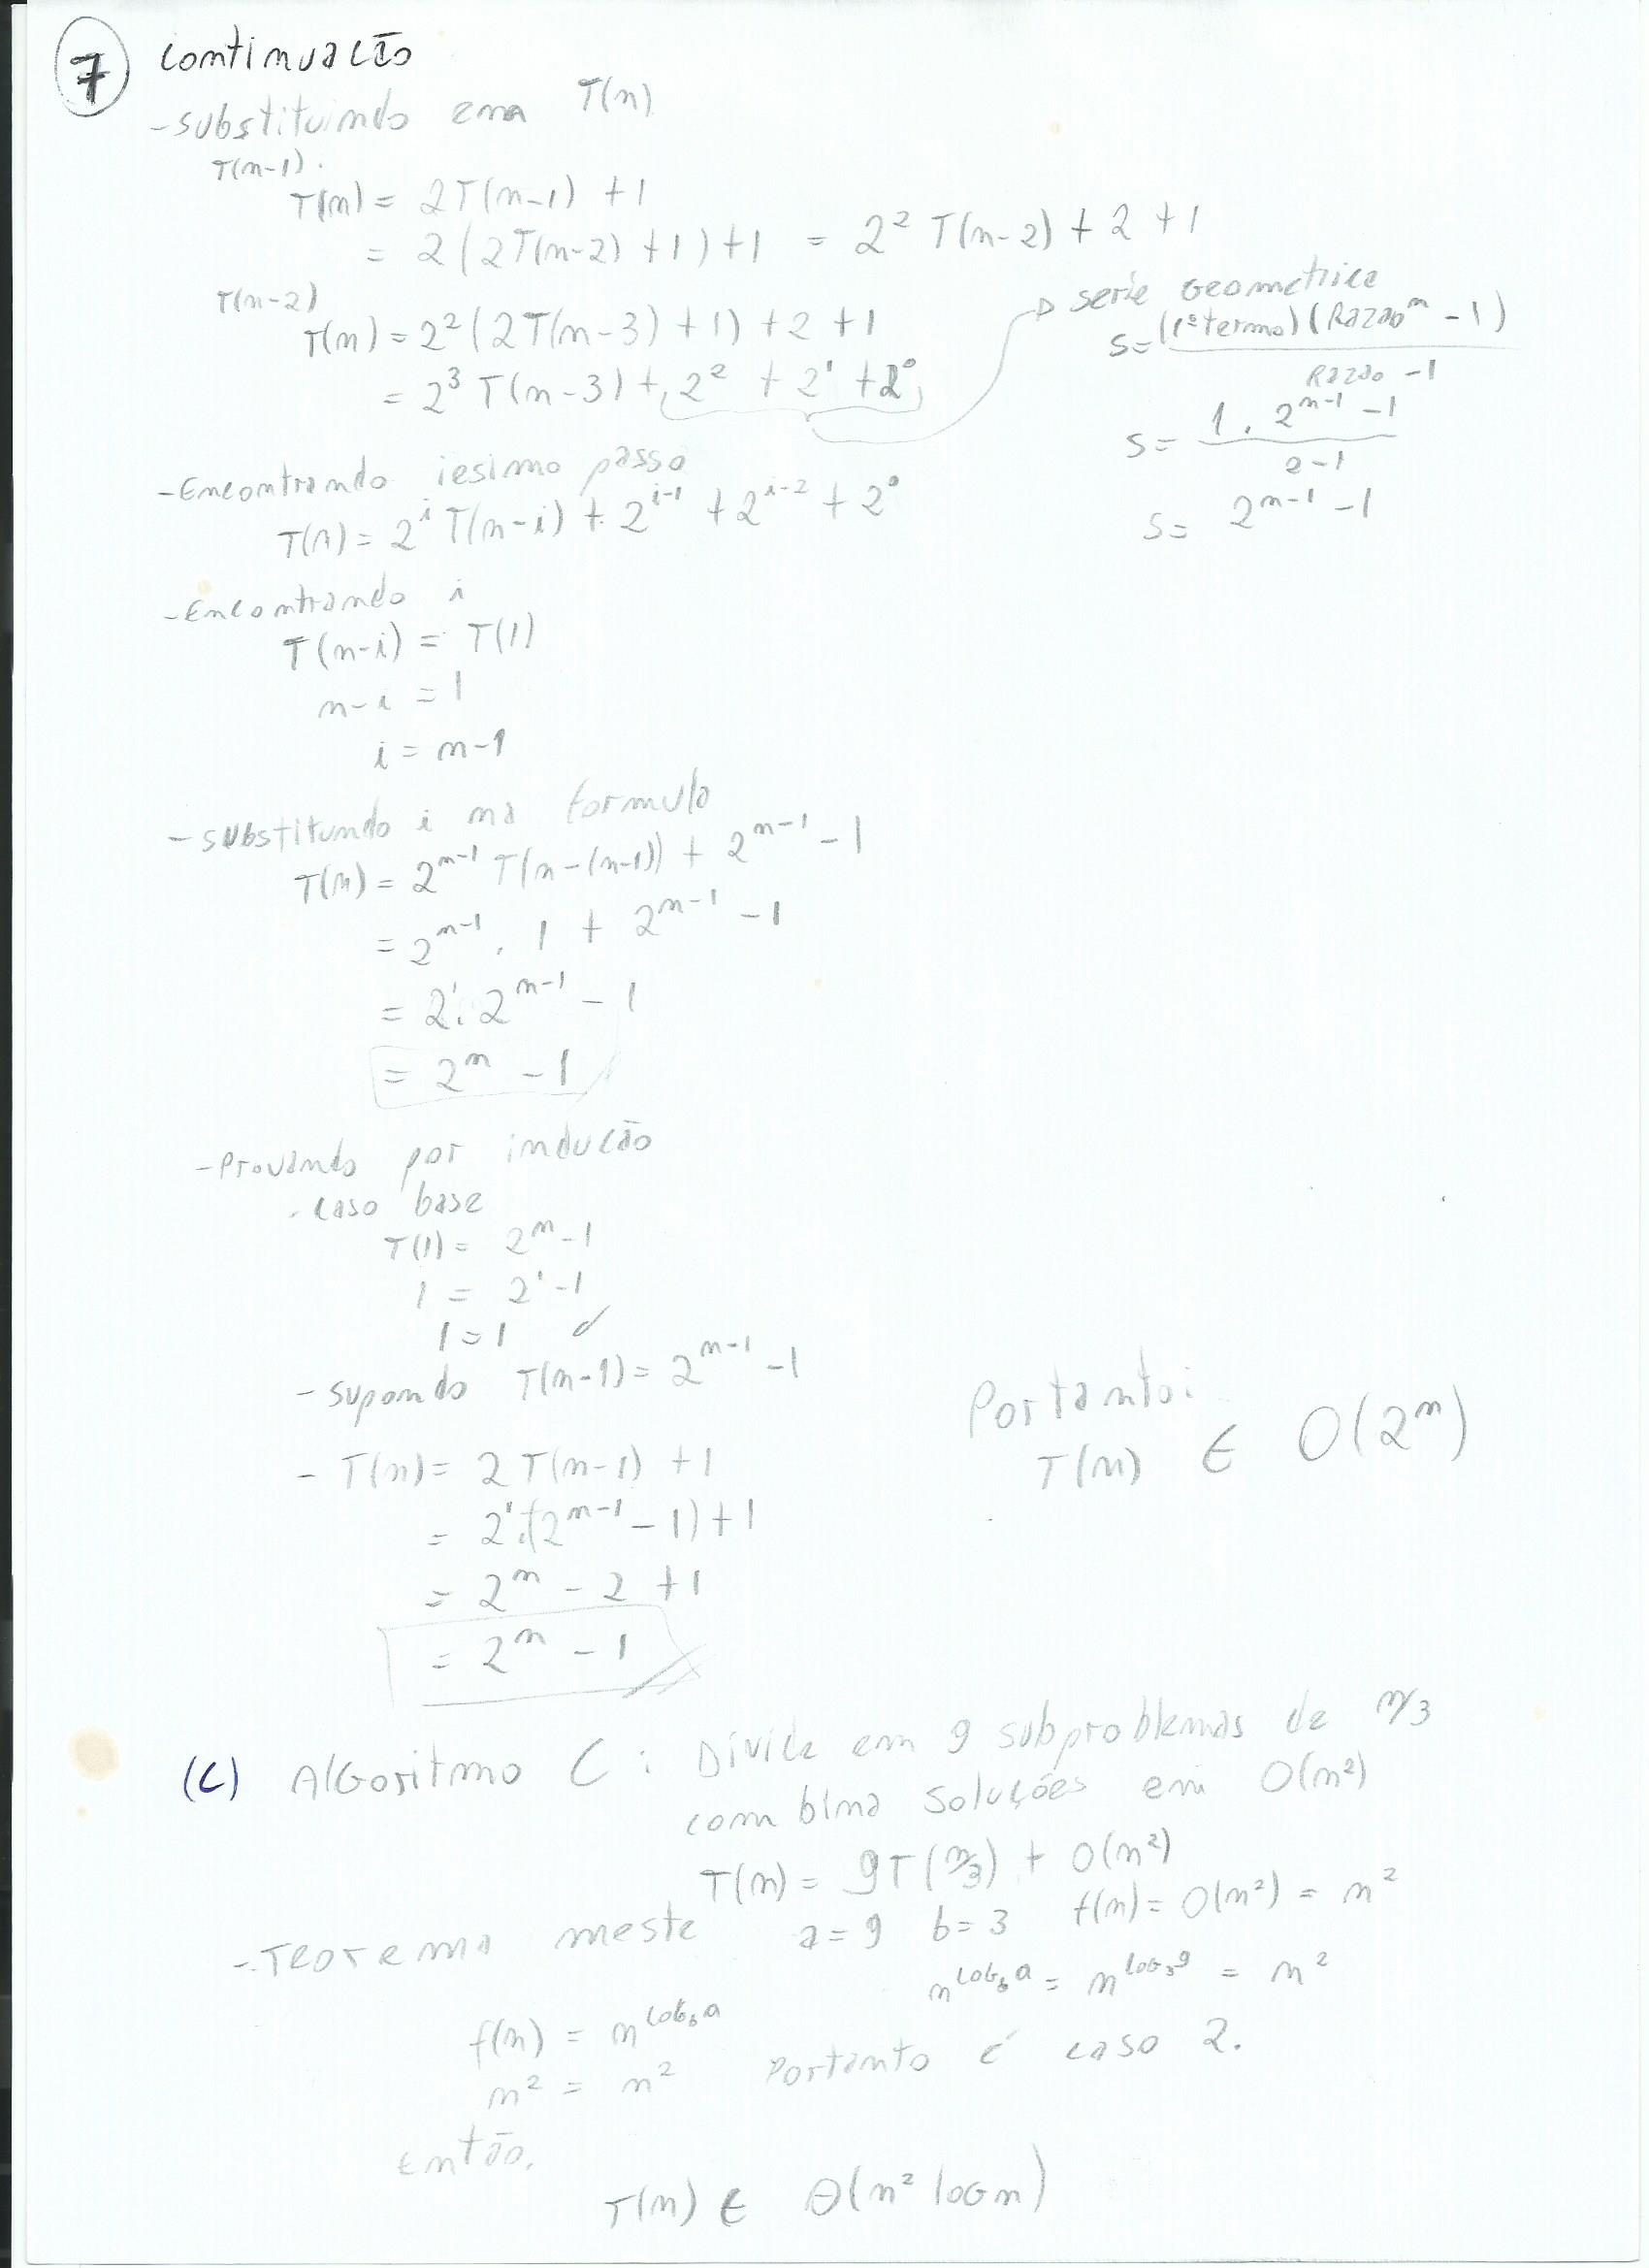 7 continuação
-substituindo em T(n)
T(n-1).
T(n) = 2T(n-1) +1
= 2(2T(n-2) +1)+1 = 2² T(n-2) + 2 +1
T(n-2)
T(n) = 2²(2T(n-3) +1) +2 +1
= 2³ T(n-3) + 2² + 2¹ + 2⁰
serie Geometrica
S= (1º termo)(Razaoⁿ - 1)
Razao -1
S= 1 . 2ⁿ⁻¹ -1
2-1
S= 2ⁿ⁻¹ -1
-Encontrando iesimo passo
T(n) = 2ⁱ T(n-i) + 2ⁱ⁻¹ + 2ⁱ⁻² + 2⁰
-Encontrando i
T(n-i) = T(1)
n-i = 1
i = n-1
-substitundo i na formula
T(n) = 2ⁿ⁻¹ T(n-(n-1)) + 2ⁿ⁻¹ -1
= 2ⁿ⁻¹ . 1 + 2ⁿ⁻¹ -1
= 2¹. 2ⁿ⁻¹ -1
= 2ⁿ -1
-Provando por indução
. caso base
T(1) = 2ⁿ-1
1 = 2¹-1
1=1 ✓
-supondo T(n-1) = 2ⁿ⁻¹ -1
- T(n) = 2T(n-1) +1
= 2¹.(2ⁿ⁻¹ -1)+1
= 2ⁿ - 2 +1
= 2ⁿ -1
Portanto:
T(n) ∈ O(2ⁿ)
(C) Algoritmo C : Divide em 9 subproblemas de n/3
combina soluções em O(n²)
T(n) = 9T(n/3) + O(n²)
-Teorema meste a=9 b=3 f(n) = O(n²) = n²
n^(log_b a) = n^(log_3 9) = n²
f(n) = n^(log_b a)
n² = n² Portanto é caso 2.
Então,
T(n) ∈ Θ(n² log n)